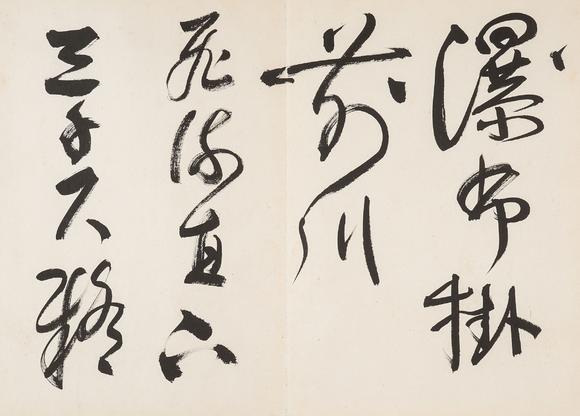 瀑布掛
前川
飛流直下
三千尺疑